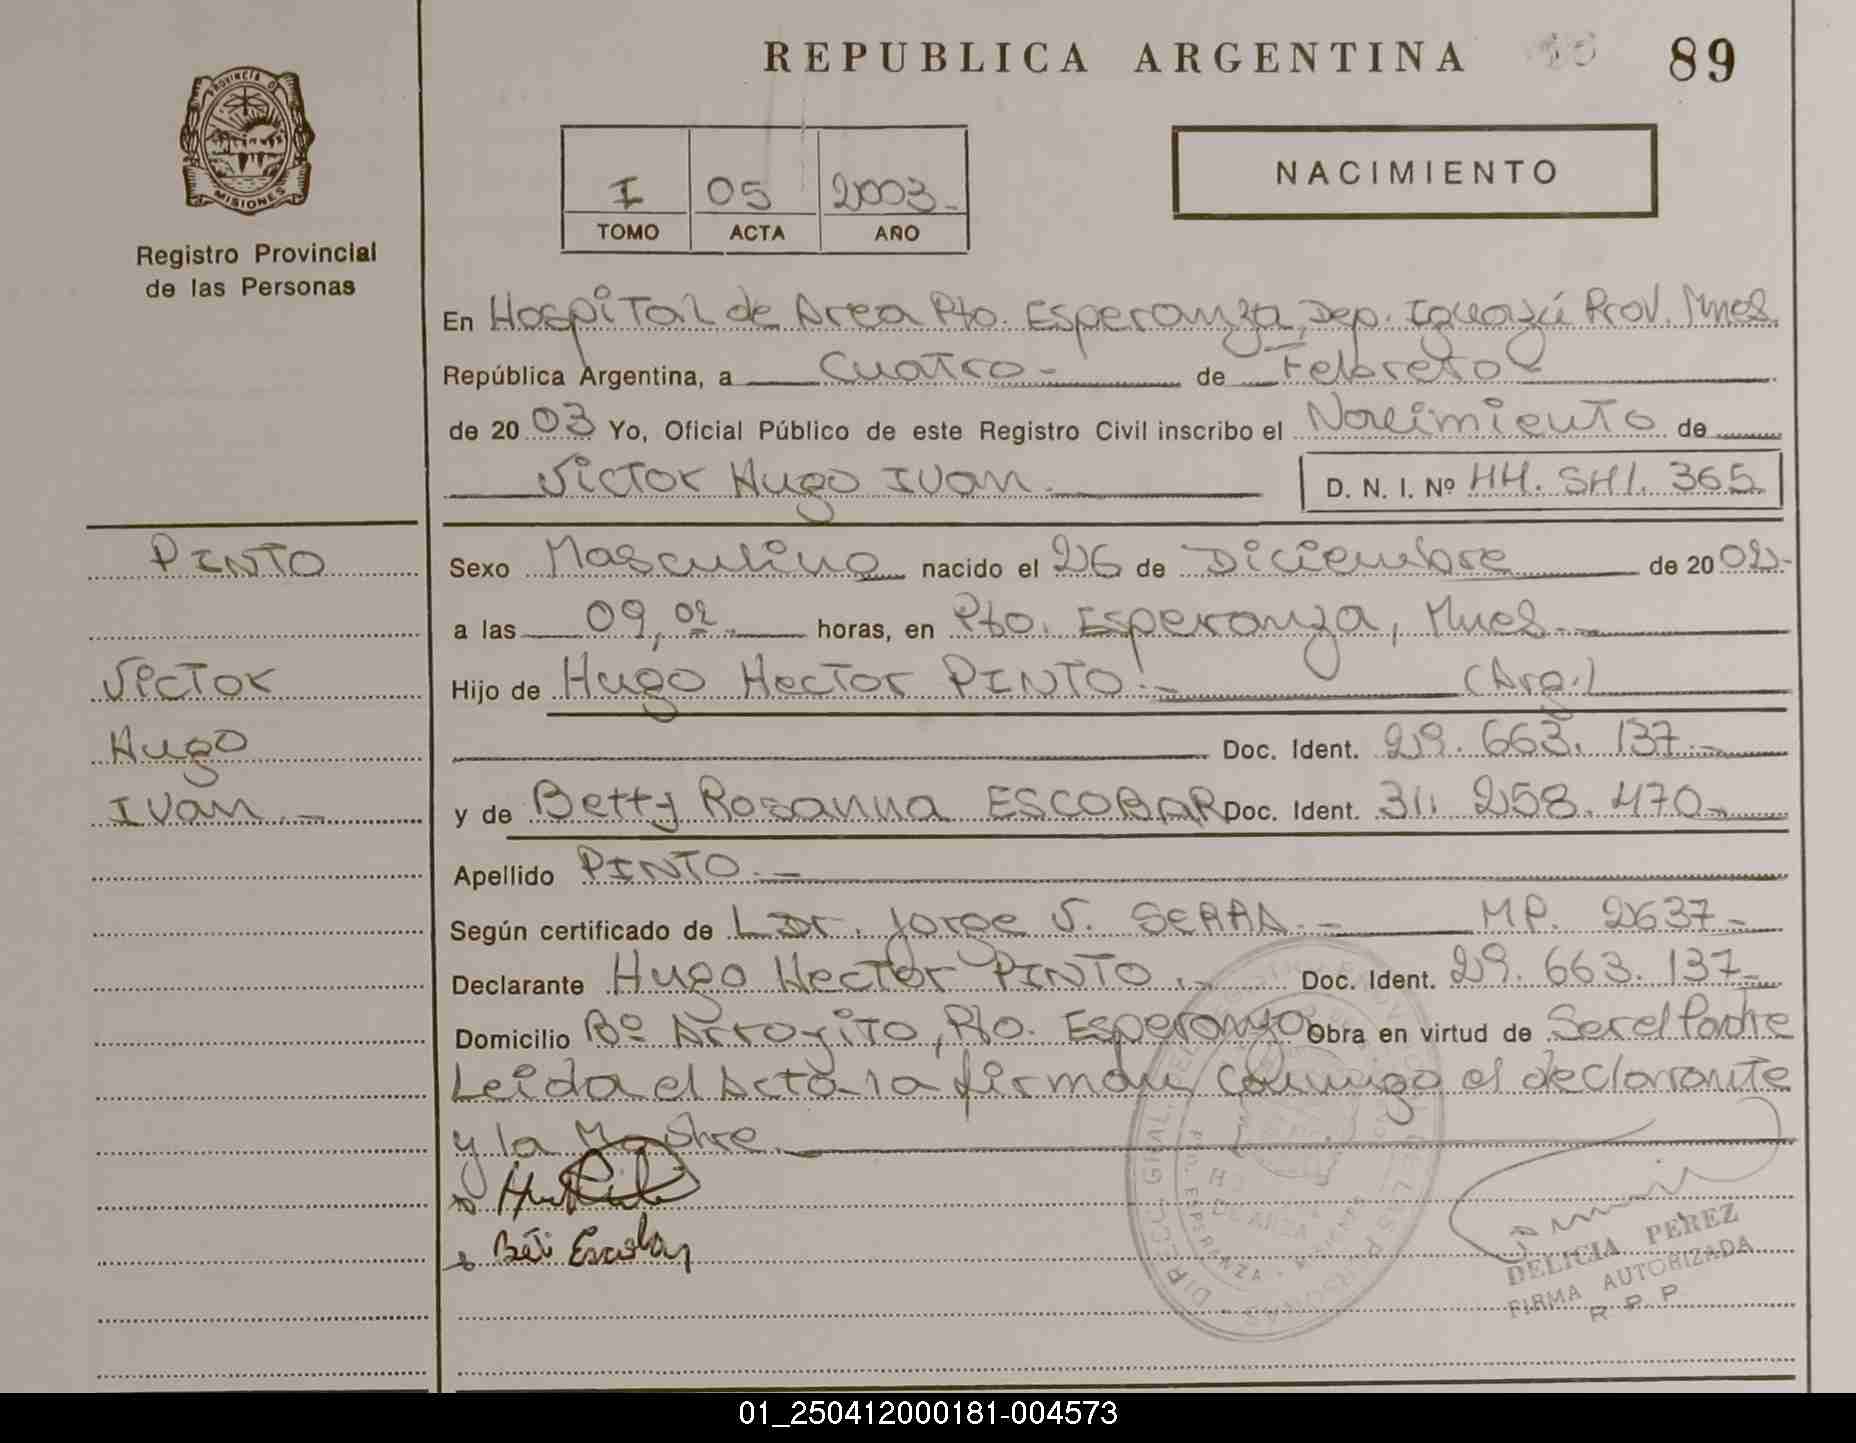 REPUBLICA ARGENTINA
89
PROVINCIA DE
MISIONES
Registro Provincial
de las Personas
I 05 2003.-
TOMO ACTA AÑO
NACIMIENTO
En Hospital de Area Pto. Esperanza, Dep. Iguazú Prov. Mnes.
República Argentina, a Cuatro.- de Febrero
de 20 03 Yo, Oficial Público de este Registro Civil inscribo el Nacimiento de
Victor Hugo Ivan.- D. N. I. Nº 44. 541. 365
PINTO
Victor
Hugo
Ivan.-
Sexo Masculino nacido el 26 de Diciembre de 20 02.-
a las 09,02.- horas, en Pto. Esperanza, Mnes.-
Hijo de Hugo Hector PINTO.- (Arg.)
Doc. Ident. 29. 663. 137.-
y de Betty Rosanna ESCOBAR Doc. Ident. 31. 258. 470.-
Apellido PINTO.-
Según certificado de Dr. Jorge V. SERRA.- MP. 2637.-
Declarante Hugo Hector PINTO.- Doc. Ident. 29. 663. 137.-
Domicilio Bº Arroyito, Pto. Esperanza Obra en virtud de Ser el Padre
Leida el Acta la firman conmigo el declarante
y la Madre.
Beti Escobar
DELICIA PEREZ
FIRMA AUTORIZADA
R. P. P
01_250412000181-004573